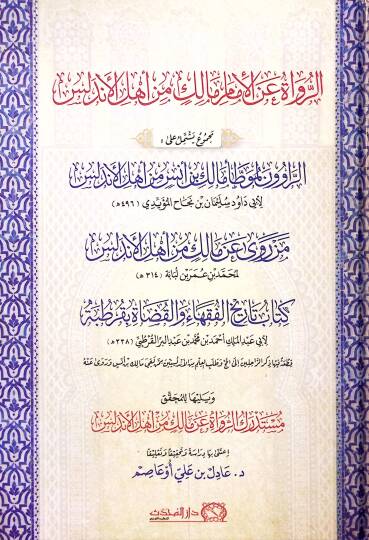 الرُّوَاةُ عَنِ الإِمَامِ مَالِكٍ مِنْ أَهْلِ الأَنْدَلُسِ
مَجْمُوعٌ يَشْتَمِلُ عَلَى :
الرَّاوُونَ لِمُوَطَّأِ مَالِكِ بْنِ أَنَسٍ مِنْ أَهْلِ الأَنْدَلُسِ
لِأَبِي دَاوُدَ سُلَيْمَانَ بْنِ نَجَاحٍ المُؤَيَّدِيِّ (ت٤٩٦ھ)
مَنْ رَوَى عَنْ مَالِكٍ مِنْ أَهْلِ الأَنْدَلُسِ
لِمُحَمَّدِ بْنِ عُمَرَ بْنِ لُبَابَةَ (ت٣١٤ھ)
كِتَابُ تَارِيخِ الفُقَهَاءِ وَالقُضَاةِ بِقُرْطُبَةَ
لِأَبِي عَبْدِ المَلِكِ أَحْمَدَ بْنِ مُحَمَّدِ بْنِ عَبْدِ البَرِّ القُرْطُبِيِّ (ت٣٣٨ھ)
وَيَلِيهَا لِلْمُحَقِّقِ
مُسْتَدْرَكُ الرُّوَاةِ عَنْ مَالِكٍ مِنْ أَهْلِ الأَنْدَلُسِ
اِعْتَنَى بِهَا دِرَاسَةً وَتَحْقِيقًا وَتَعْلِيقًا
د. عَادِلُ بْنُ عَلِيٍّ أُوعَاصِم
دار المحدث